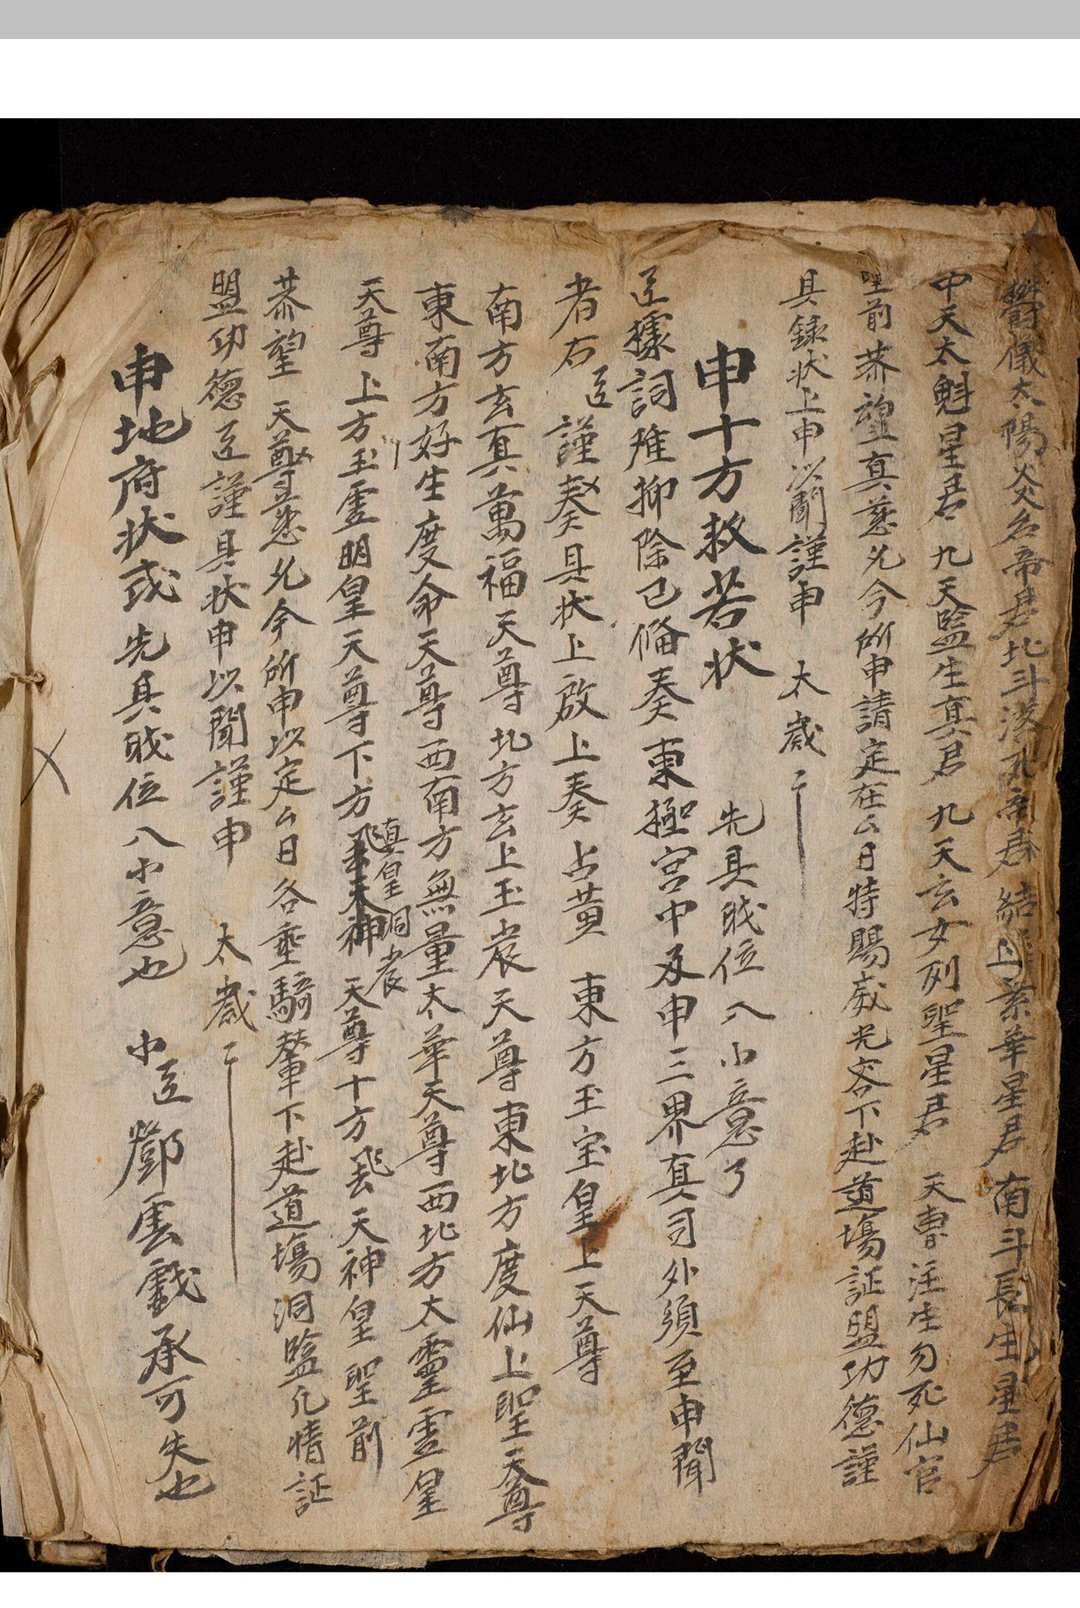 欝儀太陽炎名帝君北斗洪元帝君結璘素華星君南斗長生星君
中天太魁星君 九天監生真君 九天玄女列聖星君 天曹注生勿死仙官
聖前 恭望真慈允今所申請定在厶日特賜威光容下赴道場証盟功德謹
具錄狀上申以聞謹申 太歲
申十方救苦狀 先具戝位入小意了
臣據詞难抑除已俻奏東極宮中及申三界真司外須至申聞
者右臣謹奏具狀上啟上奏 占黄 東方玉宝皇上天尊
南方玄真萬福天尊北方玄上玉宸天尊東北方度仙上聖天尊
東南方好生度命天尊西南方無量太華天尊西北方太靈霊皇
天尊上方玉霊明皇天尊下方真皇洞宸天尊十方飛天神皇聖前
恭望 天尊慈允今所申以定厶日各垂騎輦下赴道場洞監凡情証
盟功德臣謹具狀申以聞謹申 太歲
申地府狀或 先具戝位入小意也 小臣鄧雲戲承可失也